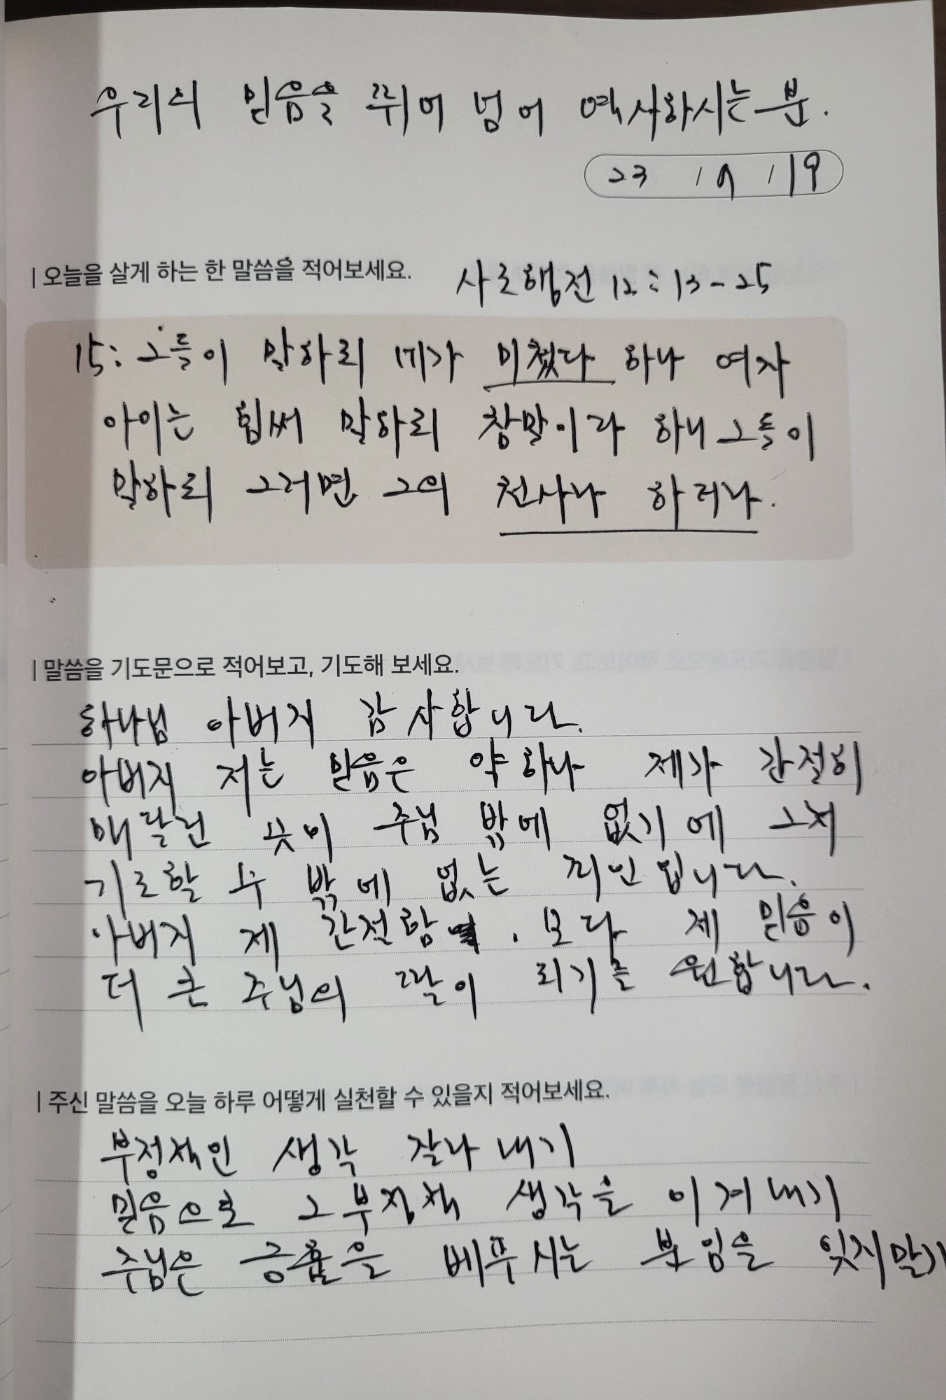 우리의 믿음을 뛰어 넘어 역사하시는 분.
23 / 9 / 19
| 오늘을 살게 하는 한 말씀을 적어보세요. 사도행전 12:13-25
15: 그들이 말하되 네가 미쳤다 하나 여자
아이는 힘써 말하되 참말이라 하니 그들이
말하되 그러면 그의 천사라 하더라.
| 말씀을 기도문으로 적어보고, 기도해 보세요.
하나님 아버지 감사합니다.
아버지 저는 믿음은 약하나 제가 간절히
매달릴 곳이 주님 밖에 없기에 그저
기도할 수 밖에 없는 죄인입니다.
아버지 제 간절함 보다 제 믿음이
더 큰 주님의 딸이 되기를 원합니다.
| 주신 말씀을 오늘 하루 어떻게 실천할 수 있을지 적어보세요.
부정적인 생각 잘라내기
믿음으로 그 부정적 생각을 이겨내기
주님은 긍휼을 베푸시는 분임을 잊지말기